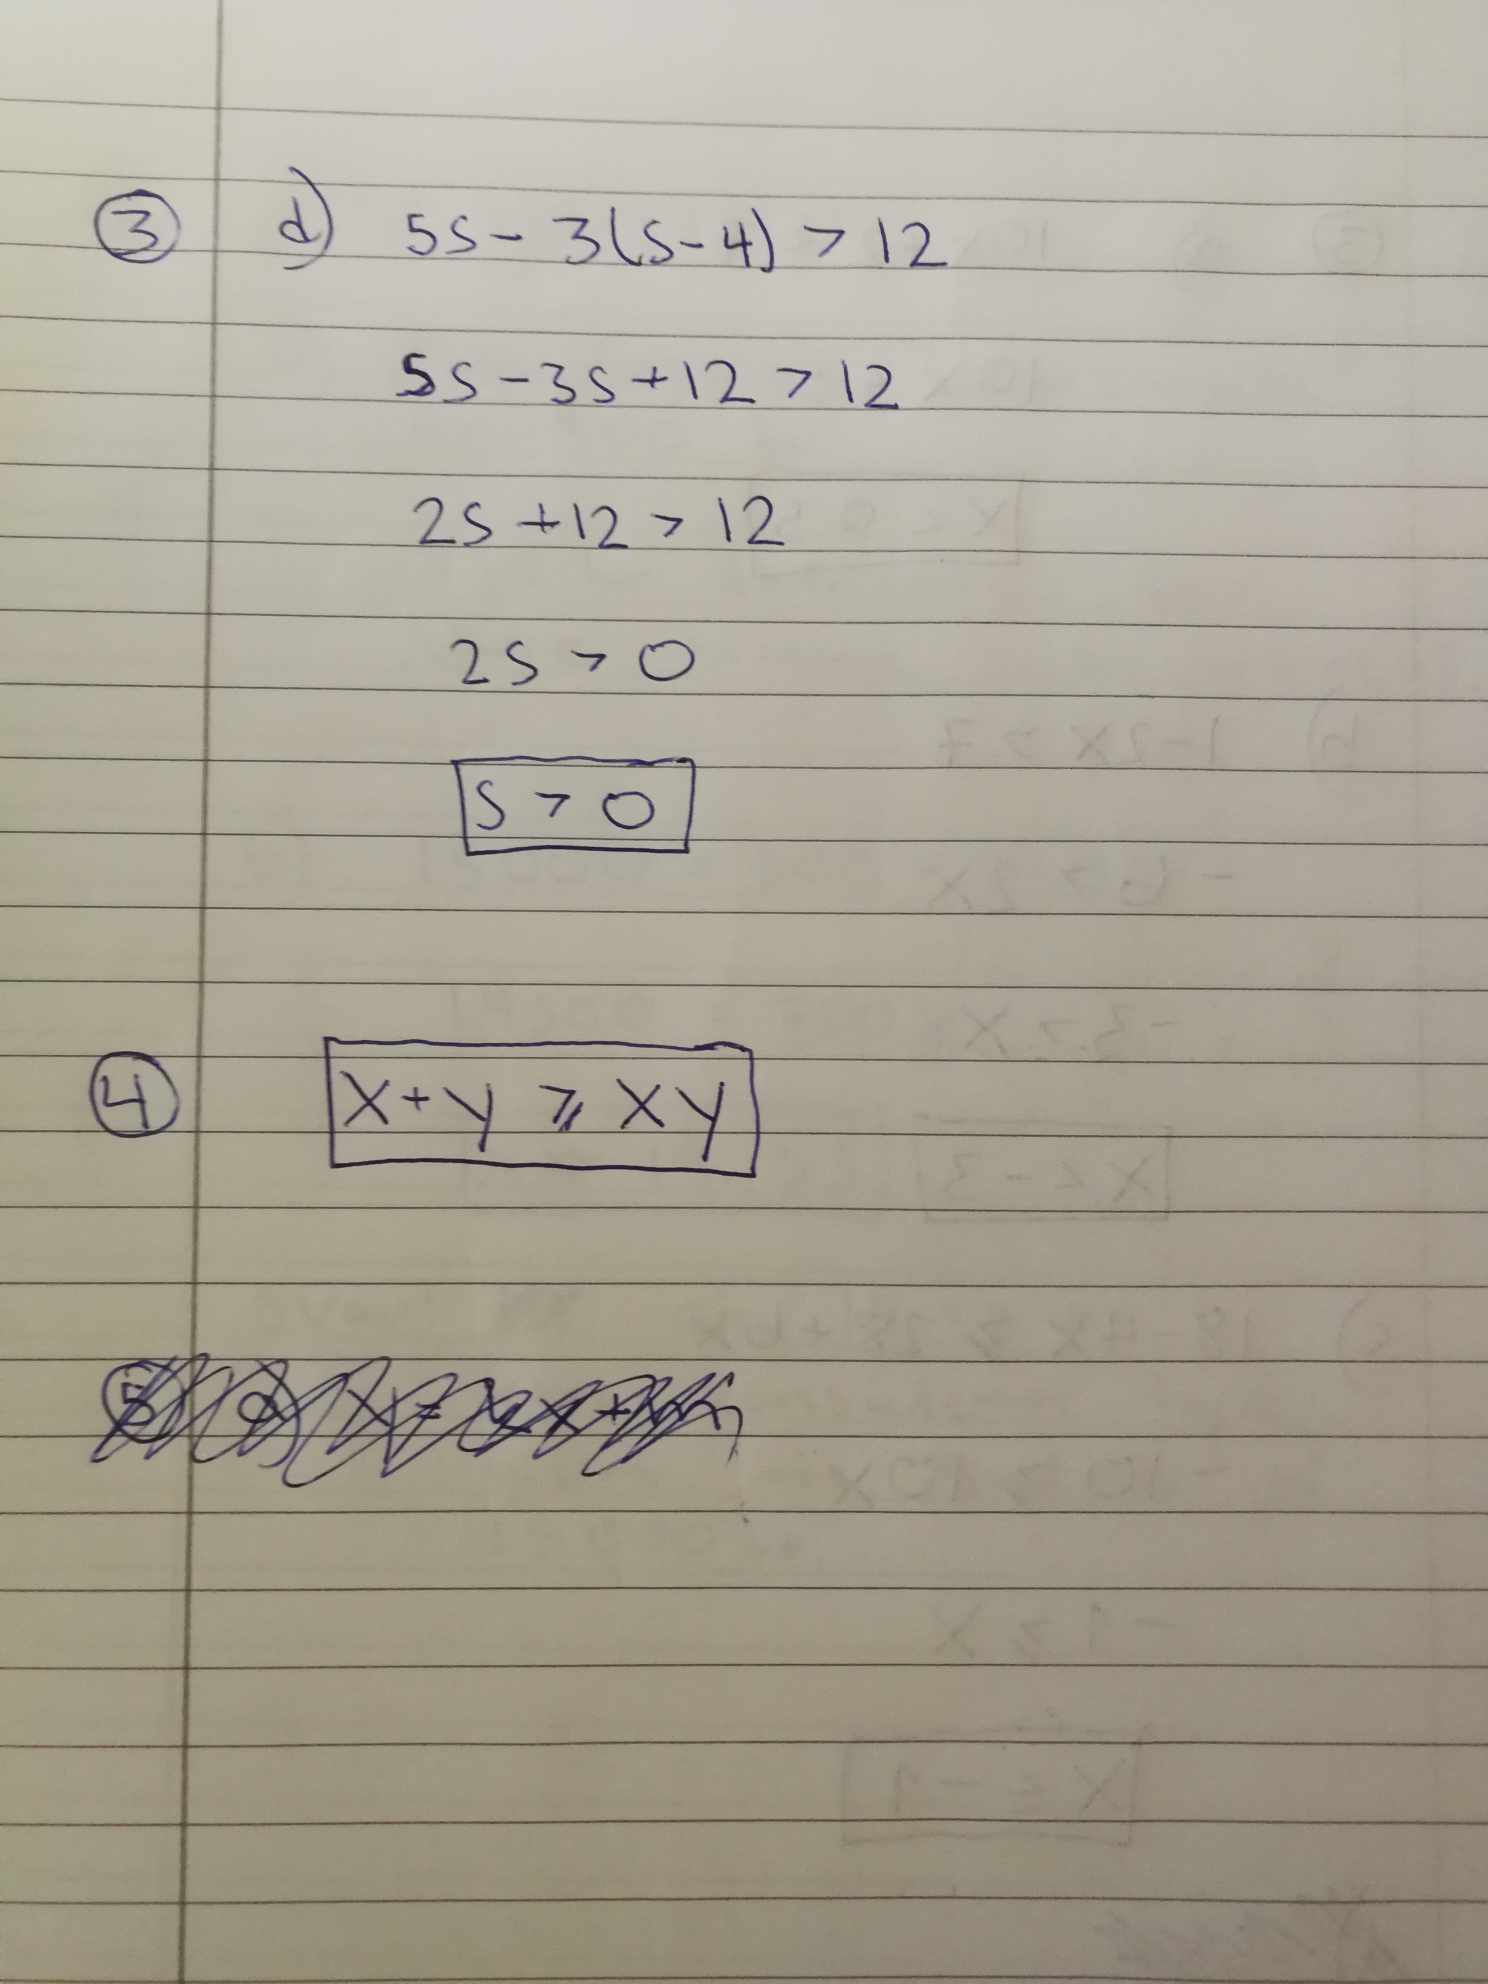 ③ d) 5s - 3(s-4) > 12
5s - 3s + 12 > 12
2s + 12 > 12
2s > 0
s > 0
④ x + y ⩾ xy